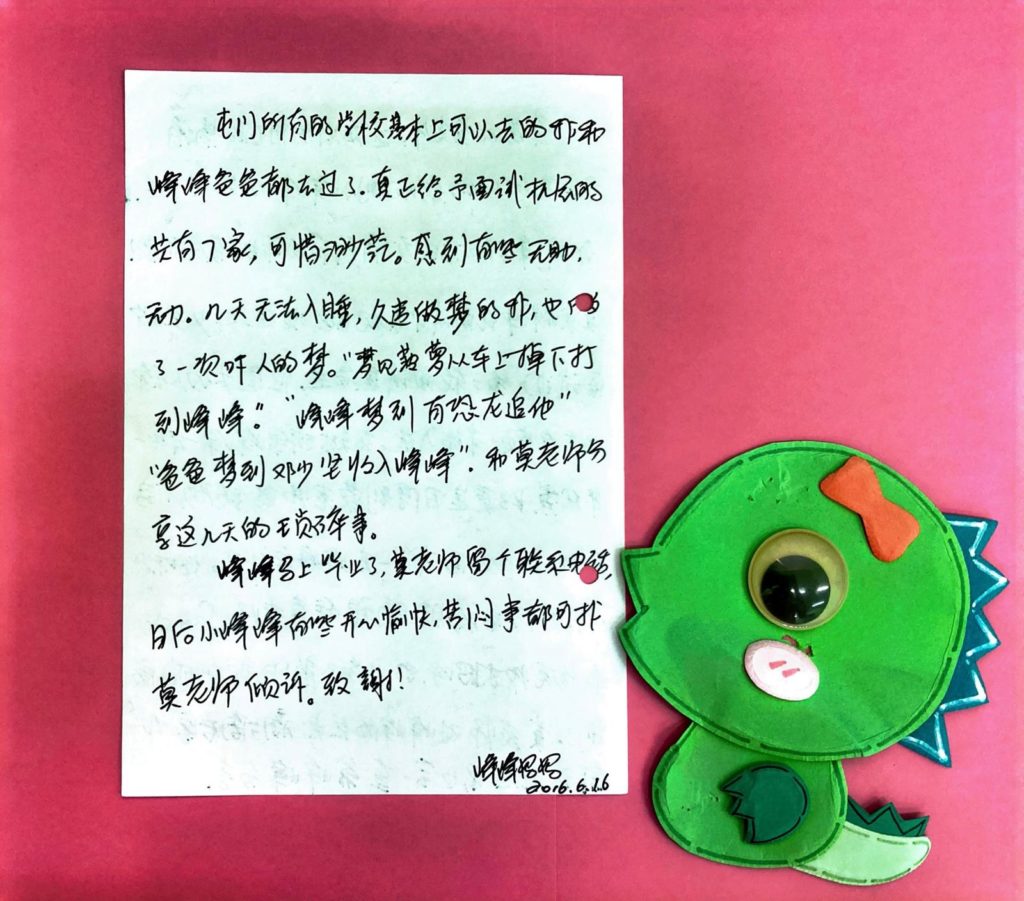 屯门所有的学校基本上可以去的我和
峰峰爸爸都去过了。真正给予面试机会的
共有7家,可惜渺茫。感到有些无助,
无力。几天无法入睡,久违做梦的我,也
了一次吓人的梦。“梦见菠萝从车上掉下打
到峰峰”。“峰峰梦到有恐龙追他”
“爸爸梦到邓少坚收入峰峰”。和莫老师分
享这几天的琐碎事。
峰峰马上毕业了,莫老师留个联系电话,
日后小峰峰有些开心愉快,苦闷事都可找
莫老师倾诉。致謝!
峰峰妈妈
2016.6.16